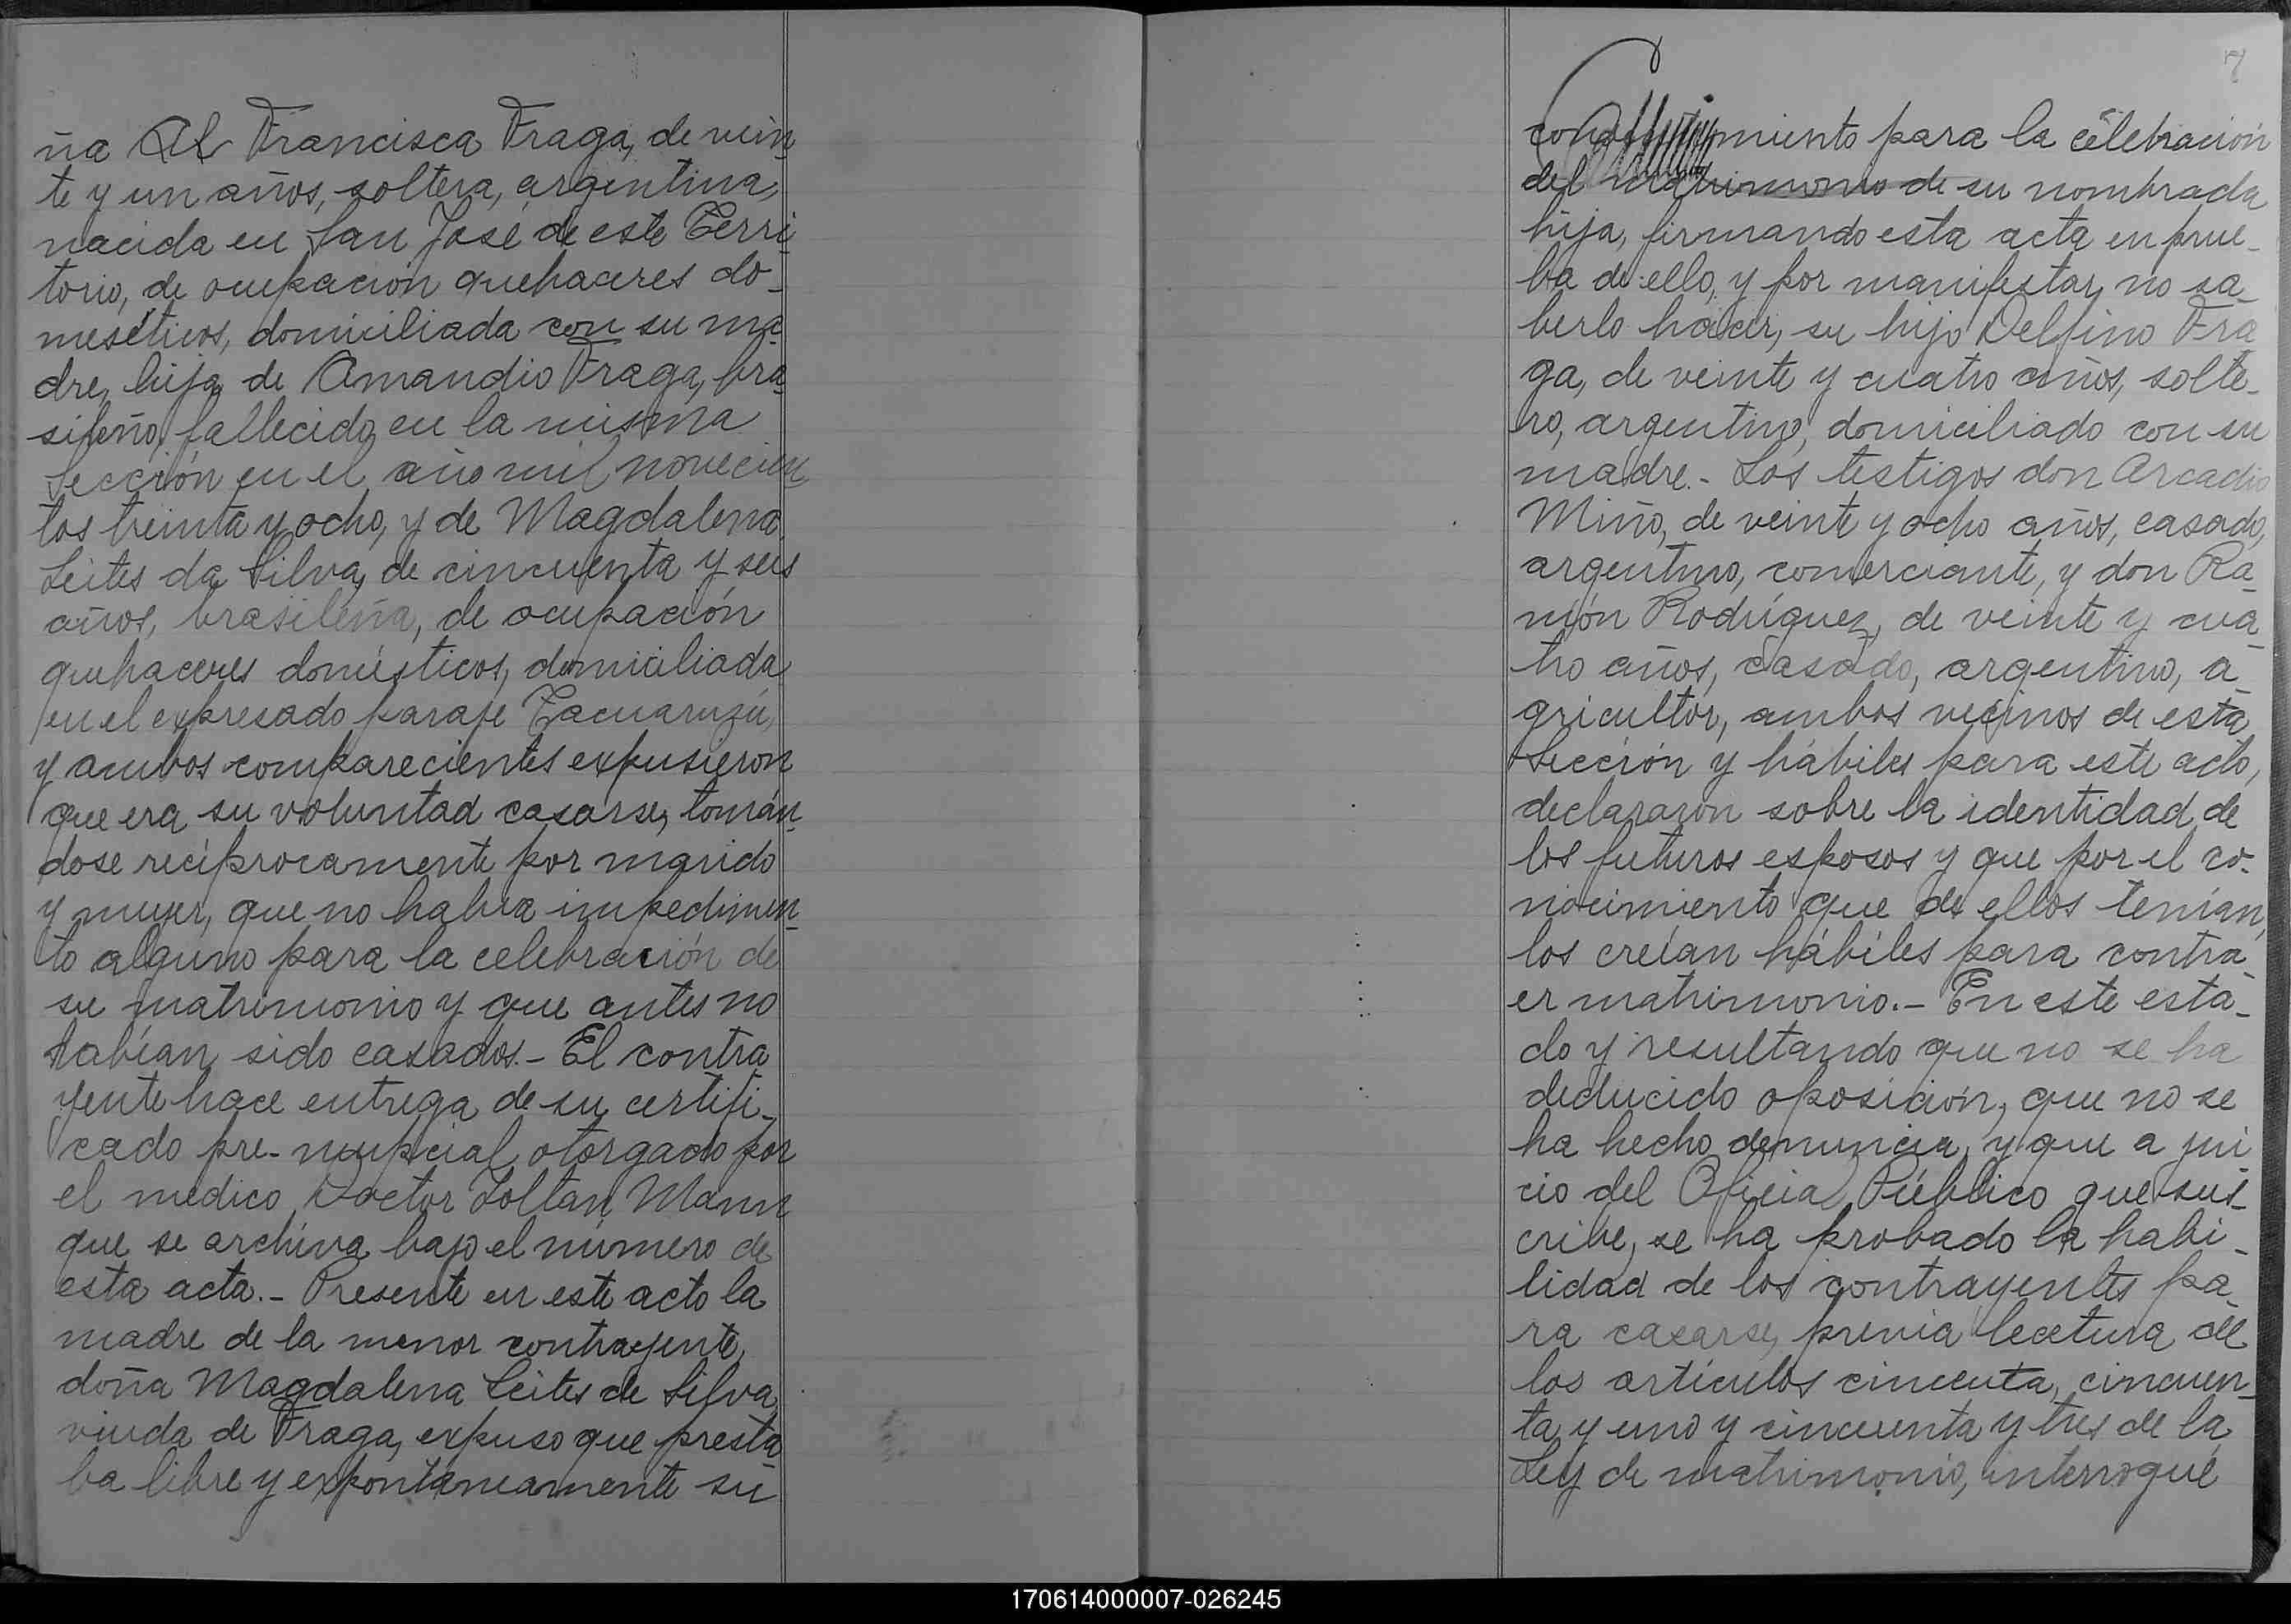 ña Francisca Fraga, de vein
te y un años, soltera, argentina,
nacida en San José de este Terri
torio, de ocupación quehaceres do-
mesëticos, domiciliada con su ma
dre, hija de Amandio Fraga, bra
sileño, fallecido en la misma
Sección en el año mil novecien
tos treinta y ocho, y de Magdalena
Leites da Silva, de cincuenta y seis
años, brasileña, de ocupación
quehaceres domésticos, domiciliada
en el expresado paraje Tacuaruzú,
y ambos comparecientes expusieron
que era su voluntad casarse, tomán-
dose recíprocamente por marido
y mujer, que no había impedimen-
to alguno para la celebración de
su matrimonio y que antes no
habían sido casados.- El contra
yente hace entrega de su certifi-
cado pre-nupcial otorgado por
el médico Doctor Zoltan Mann
que se archiva bajo el número de
esta acta.- Presente en este acto la
madre de la menor contrayente,
doña Magdalena Leites de Silva
viuda de Fraga, expuso que presta
ba libre y expontáneamente su
7
miento para la celebración
del matrimonio de su nombrada
hija, firmando esta acta en prue-
ba de ello, y por manifestar no sa-
berlo hacer, su hijo Delfino Fra
ga, de veinte y cuatro años, solte-
ro, argentino, domiciliado con su
madre.- Los testigos don Arcadio
Miño, de veinte y ocho años, casado,
argentino, comerciante, y don Ra-
món Rodríguez, de veinte y cua-
tro años, casado, argentino, a-
gricultor, ambos vecinos de esta
Sección y hábiles para este acto,
declararon sobre la identidad de
los futuros esposos y que por el co-
nocimiento que de ellos tenían,
los creían hábiles para contra-
er matrimonio.- En este esta-
do y resultando que no se ha
deducido oposición, que no se
ha hecho denuncia, y que a jui-
cio del Oficial Público que sus-
cribe, se ha probado la habi-
lidad de los contrayentes pa-
ra casarse, previa lectura de
los artículos cincuenta, cincuen-
ta y uno y cincuenta y tres de la
Ley de matrimonio, interrogué
170614000007-026245